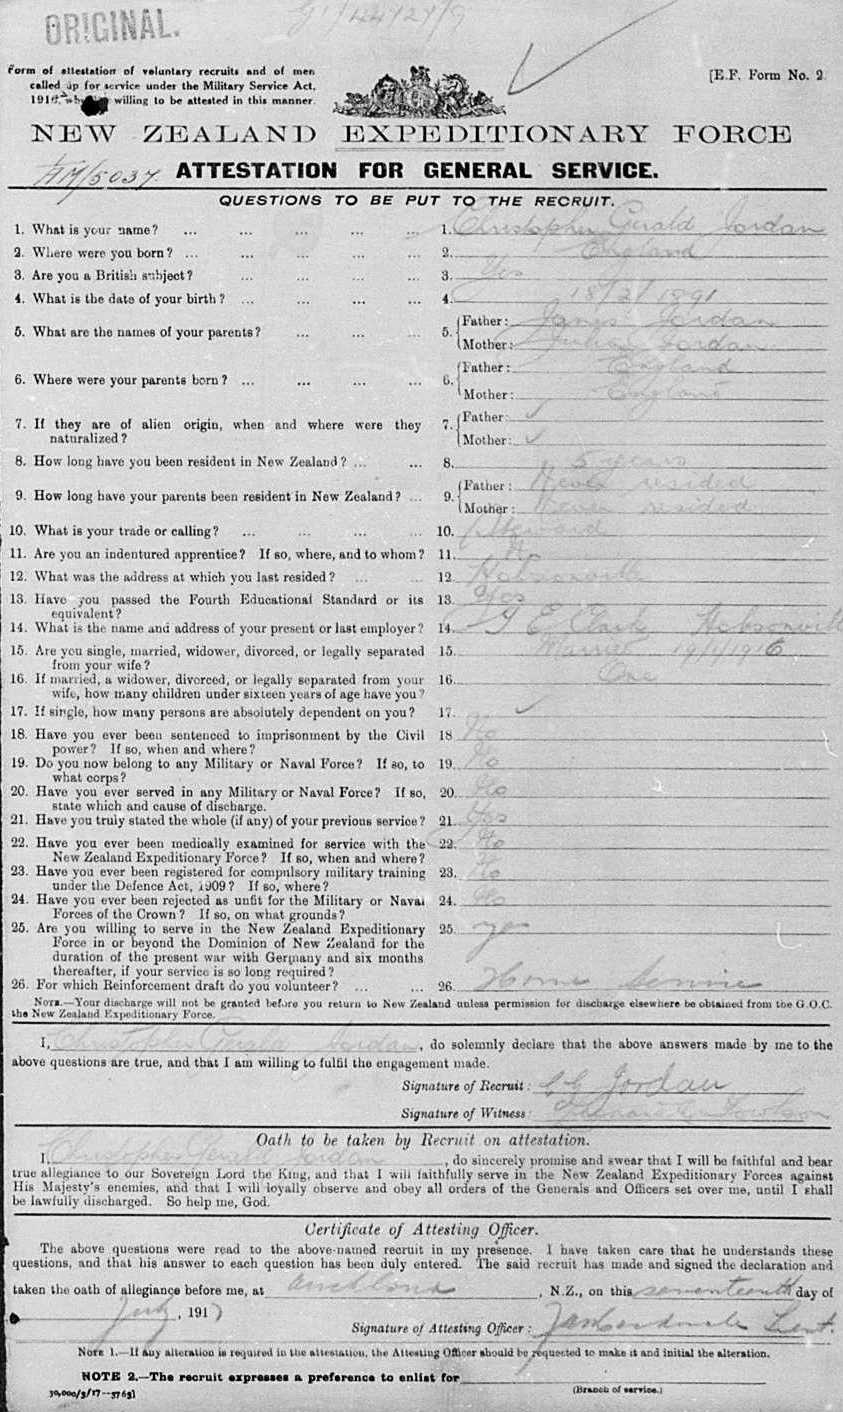 ORIGINAL.
Form of attestation of voluntary recruits and of men
called up for service under the Military Service Act,
1916, willing to be attested in this manner.
[E.F. Form No. 2.
NEW ZEALAND EXPEDITIONARY FORCE
ATTESTATION FOR GENERAL SERVICE.
QUESTIONS TO BE PUT TO THE RECRUIT.
1. What is your name? ... ... ... ... 1. Christopher Gerald Jordan
2. Where were you born? ... ... ... ... ... 2. England
3. Are you a British subject? ... ... ... ... 3. Yes
4. What is the date of your birth? ... ... ... 4. 18/2/1891
5. What are the names of your parents? ... ... 5. Father: James Jordan
Mother: Julia Jordan
6. Where were your parents born? ... ... ... 6. Father: England
Mother: England
7. If they are of alien origin, when and where were they 7. Father: ✓
naturalized? Mother: ✓
8. How long have you been resident in New Zealand? ... ... 8. 5 years
9. How long have your parents been resident in New Zealand? ... 9. Father: Never resided
Mother: Never resided
10. What is your trade or calling? ... ... ... 10. Steward
11. Are you an indentured apprentice? If so, where, and to whom? 11. No
12. What was the address at which you last resided? ... ... 12. Hobsonville
13. Have you passed the Fourth Educational Standard or its 13. Yes
equivalent?
14. What is the name and address of your present or last employer? 14. E Clark Hobsonville
15. Are you single, married, widower, divorced, or legally separated 15. Married 19/1/1916
from your wife?
16. If married, a widower, divorced, or legally separated from your 16. One
wife, how many children under sixteen years of age have you?
17. If single, how many persons are absolutely dependent on you? 17. ✓
18. Have you ever been sentenced to imprisonment by the Civil 18. No
power? If so, when and where?
19. Do you now belong to any Military or Naval Force? If so, to 19. No
what corps?
20. Have you ever served in any Military or Naval Force? If so, 20. No
state which and cause of discharge.
21. Have you truly stated the whole (if any) of your previous service? 21. Yes
22. Have you ever been medically examined for service with the 22. No
New Zealand Expeditionary Force? If so, when and where?
23. Have you ever been registered for compulsory military training 23. No
under the Defence Act, 1909? If so, where?
24. Have you ever been rejected as unfit for the Military or Naval 24. No
Forces of the Crown? If so, on what grounds?
25. Are you willing to serve in the New Zealand Expeditionary 25. yes
Force in or beyond the Dominion of New Zealand for the
duration of the present war with Germany and six months
thereafter, if your service is so long required?
26. For which Reinforcement draft do you volunteer? ... ... 26. Home Service
NOTE.—Your discharge will not be granted before you return to New Zealand unless permission for discharge elsewhere be obtained from the G.O.C.
the New Zealand Expeditionary Force.
I, Christopher Gerald Jordan, do solemnly declare that the above answers made by me to the
above questions are true, and that I am willing to fulfil the engagement made.
Signature of Recruit: C G Jordan
Signature of Witness:
Oath to be taken by Recruit on attestation.
I, Christopher Gerald Jordan, do sincerely promise and swear that I will be faithful and bear
true allegiance to our Sovereign Lord the King, and that I will faithfully serve in the New Zealand Expeditionary Forces against
His Majesty's enemies, and that I will loyally observe and obey all orders of the Generals and Officers set over me, until I shall
be lawfully discharged. So help me, God.
Certificate of Attesting Officer.
The above questions were read to the above-named recruit in my presence. I have taken care that he understands these
questions, and that his answer to each question has been duly entered. The said recruit has made and signed the declaration and
taken the oath of allegiance before me, at Auckland, N.Z., on this seventeenth day of
July, 1917
Signature of Attesting Officer: Lieut.
NOTE 1.—If any alteration is required in the attestation, the Attesting Officer should be requested to make it and initial the alteration.
NOTE 2.—The recruit expresses a preference to enlist for
(Branch of service.)
30,000/3/17—3763]